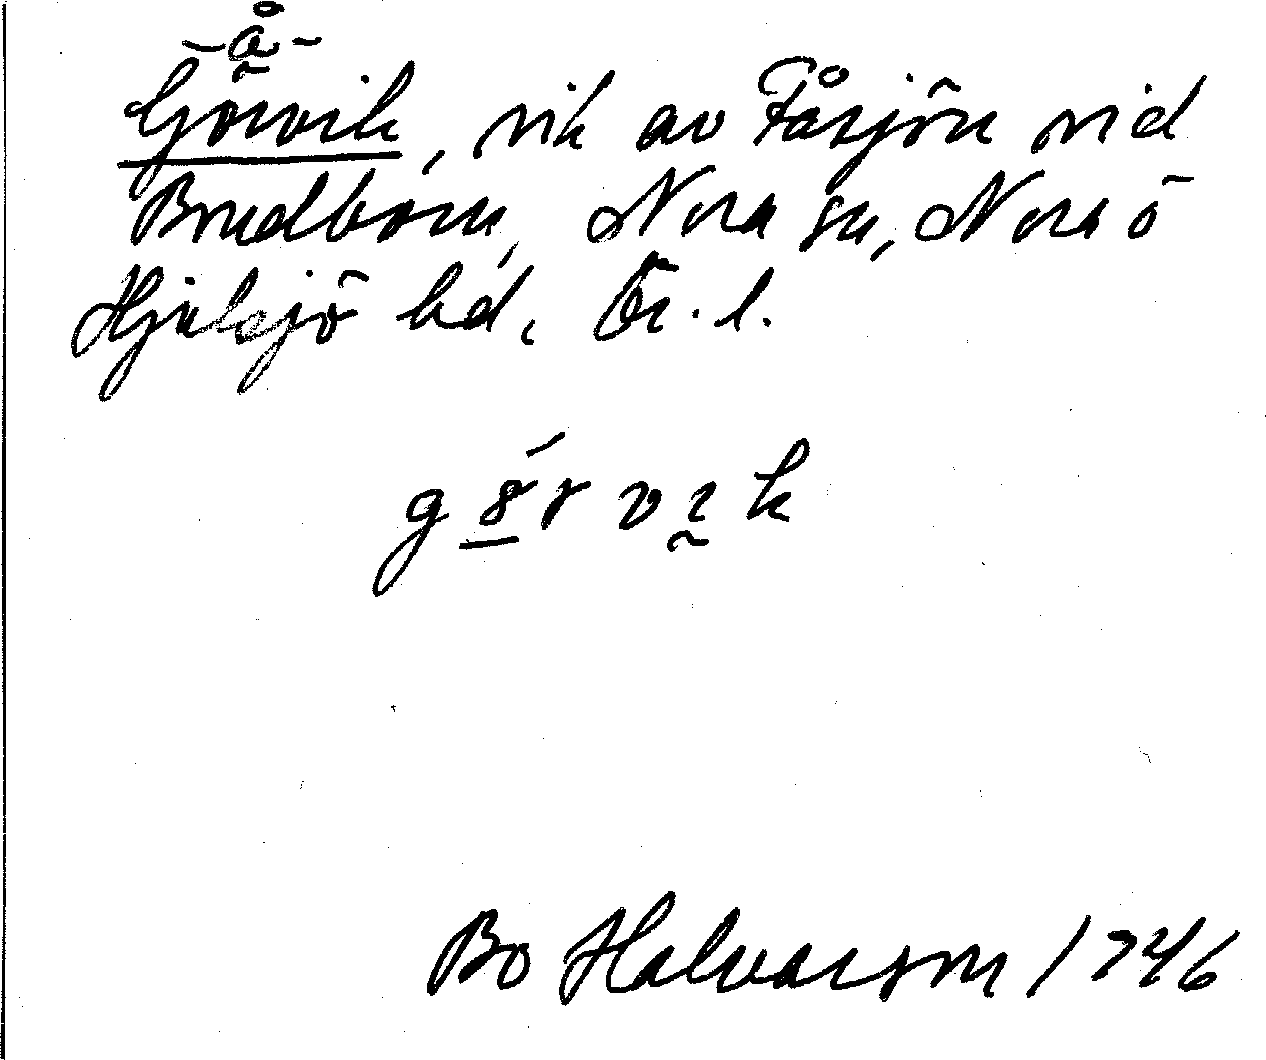 -å-
Görvik, vik av Fåsjön vid
Bredbörn, Nora sn, Nora o
Hjulsjö hd, Ör. l.
Bo Halvarson 1946